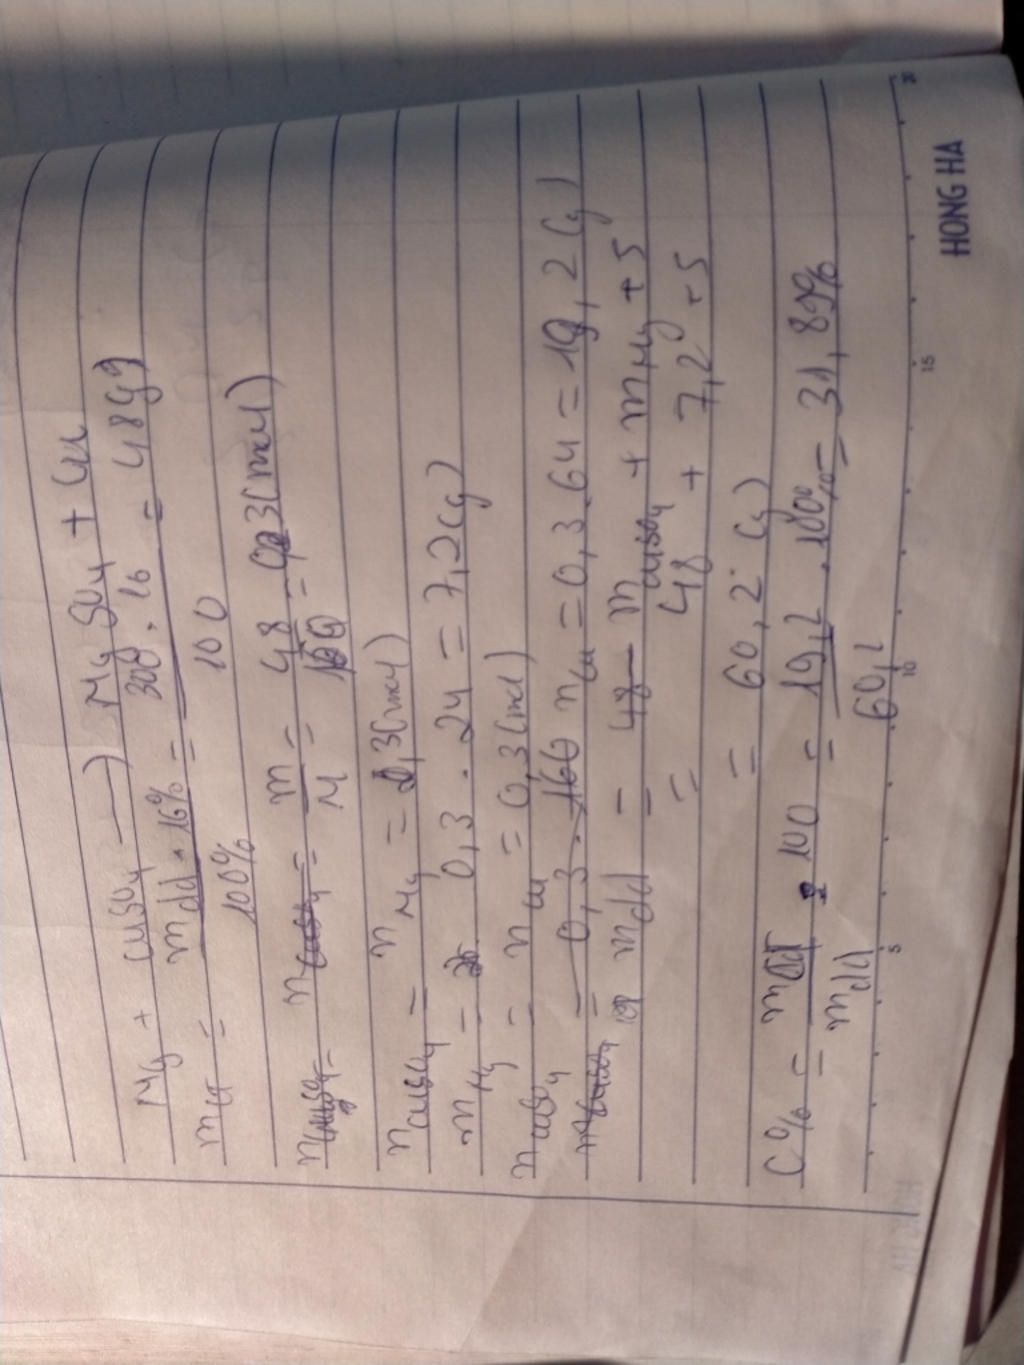 Mg + CuSO4 → MgSO4 + Cu
mct = mdd . 16% / 100% = 300 . 16 / 100 = 48g
nCuSO4 = nCuSO4 = m / M = 48 / 160 = 0,3(mol)
nCuSO4 = nMg = 0,3(mol)
mMg = 0,3 . 24 = 7,2(g)
nCuSO4 = nCu = 0,3(mol)
mCuSO4 = 0,3 . 160 nCu = 0,3.64 = 19,2(g)
mdd = 48 mCuSO4 + mMg + 5
= 48 + 7,2 + 5
= 60,2 (g)
C% = mct / mdd . 100 = 19,2 / 60,2 . 100% = 31,89%
5 10 15 20
HONG HA